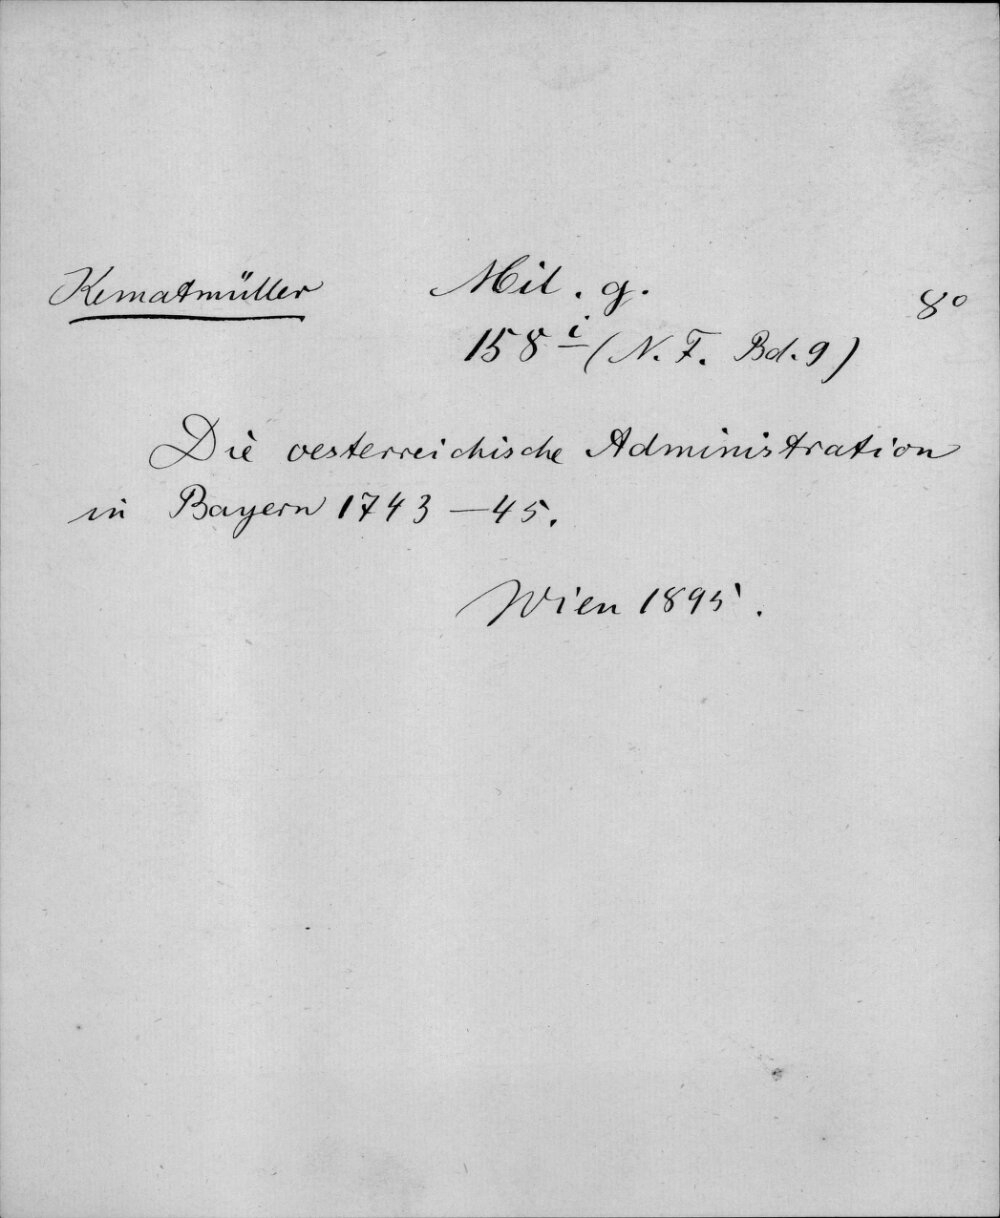 Kematmüller Mil. g. 8°
158 i (N. F. Bd. 9)
Die oesterreichische Administration
in Bayern 1743-45.
Wien 1895.